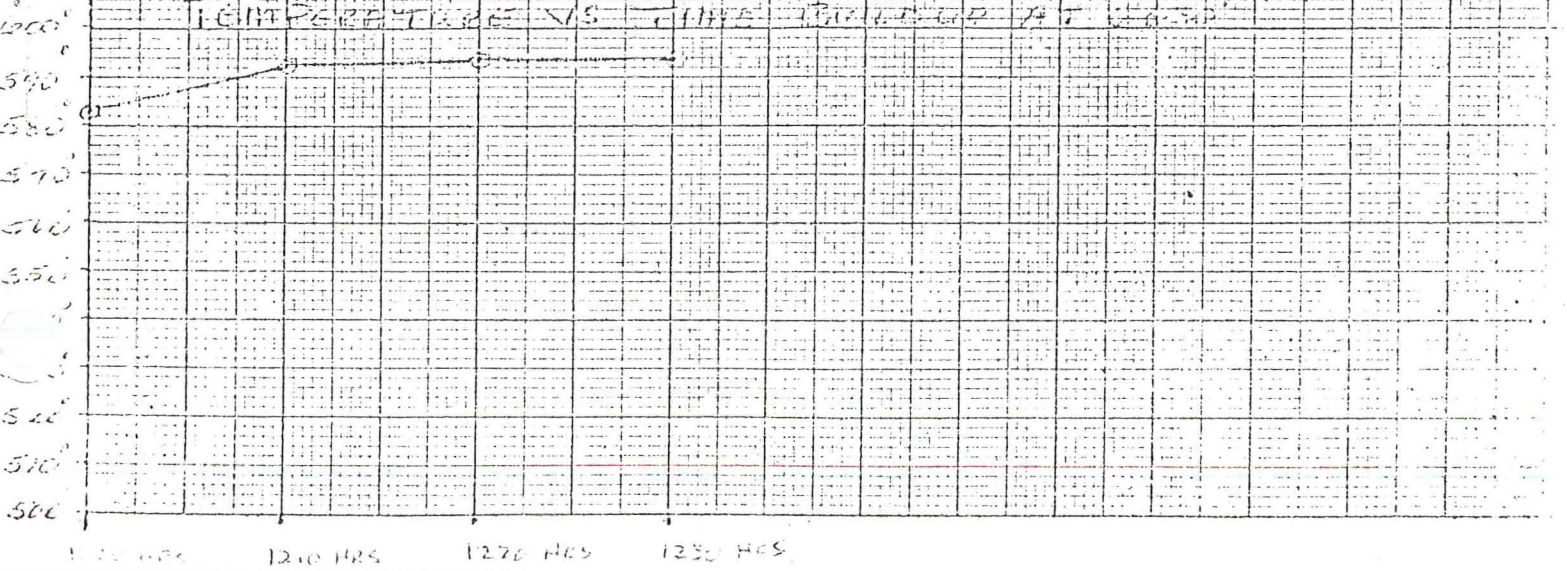 TEMPERATURE VS TIME BUILDUP AT
600°
590°
580°
570°
560°
550°
520°
510°
500
1210 HRS 1220 HRS 1230 HRS